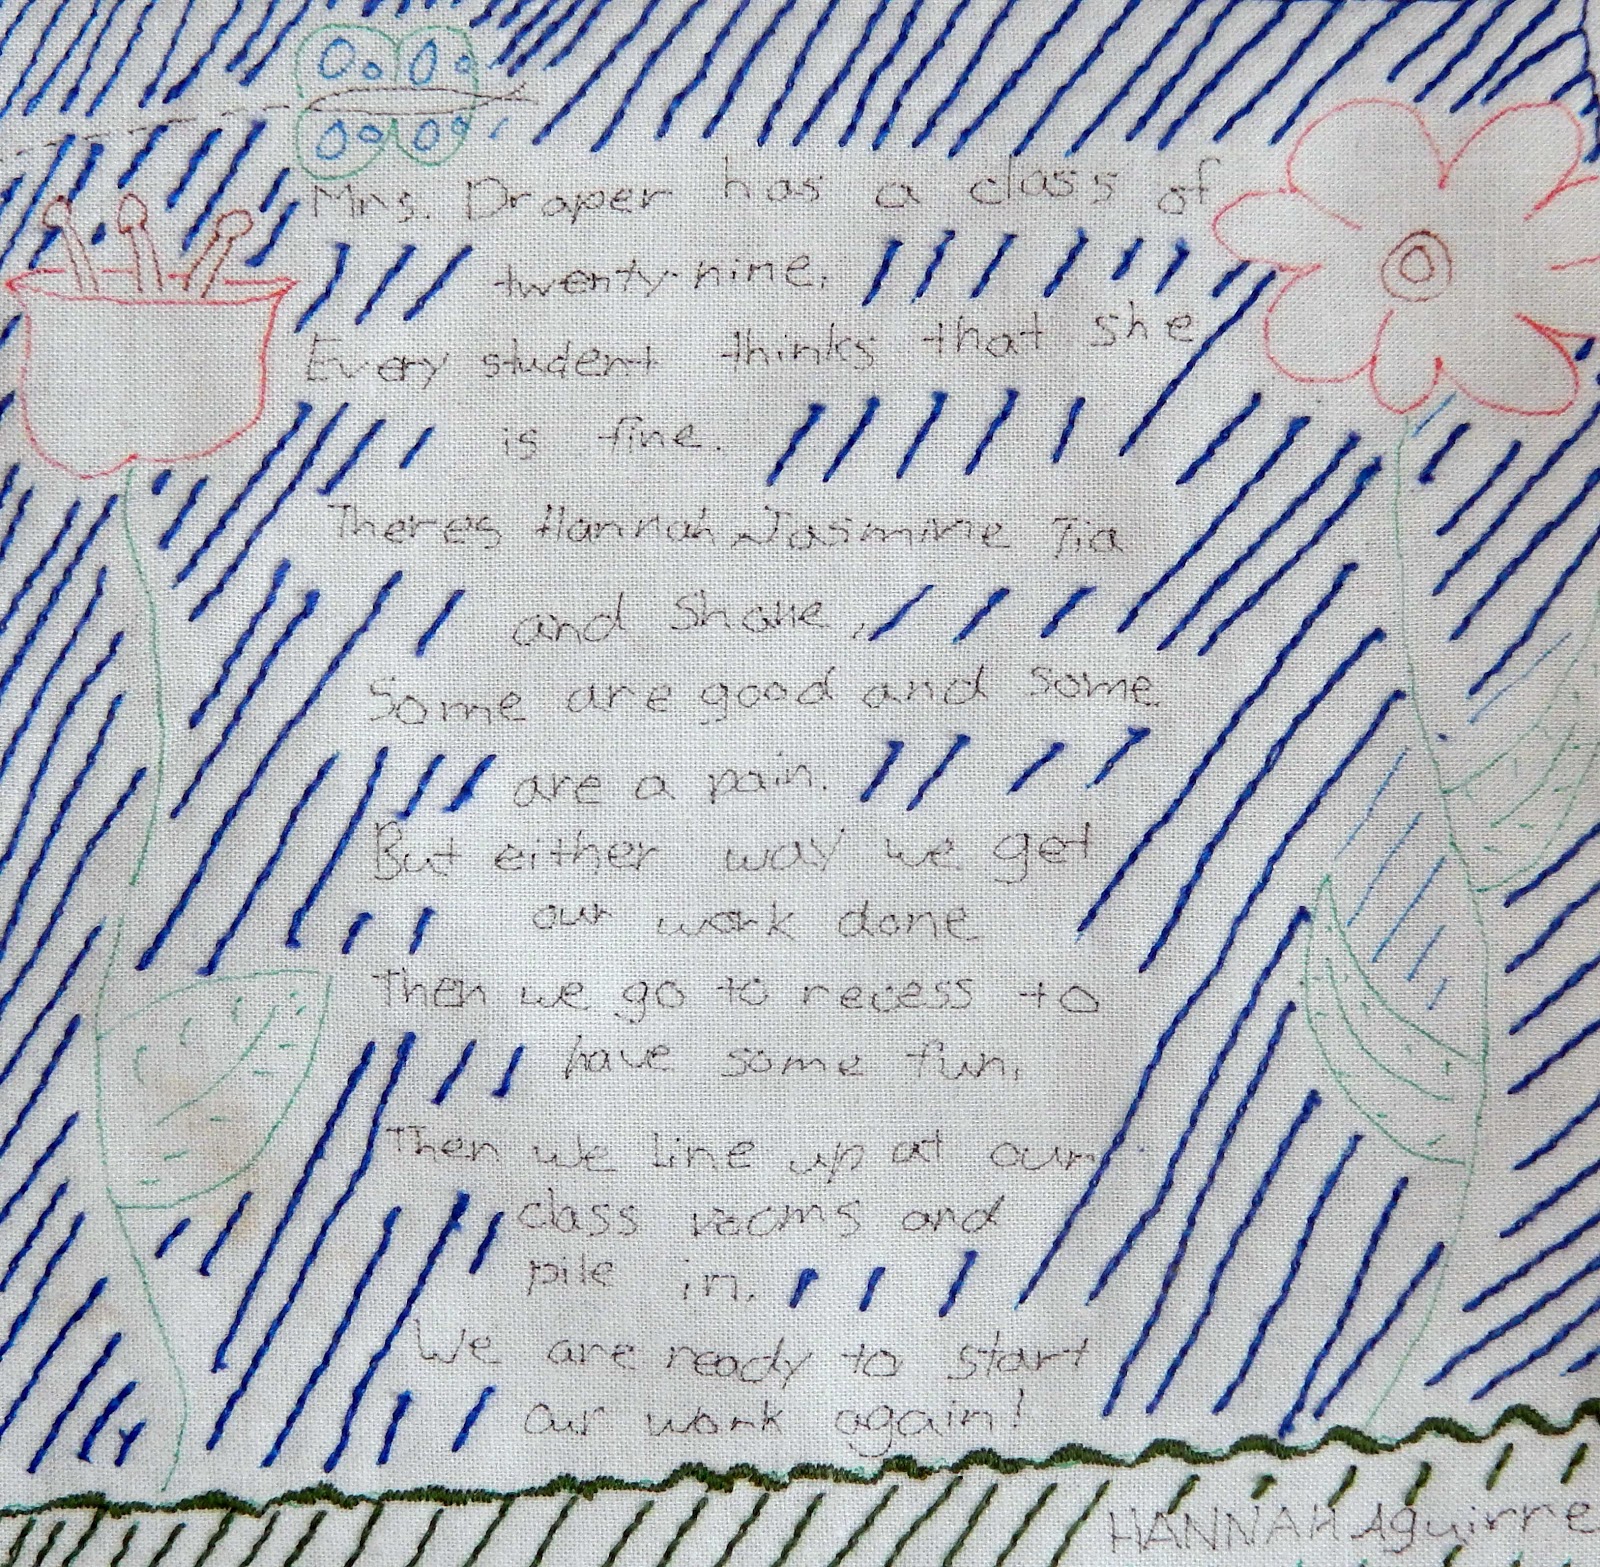 Mrs. Draper has a class of
twenty-nine.
Every student thinks that she
is fine.
Theres Hannah, Jasimine Tia
and Shane,
Some are good and some
are a pain.
But either way we get
our work done
Then we go to recess to
have some fun.
Then we line up at our
class rooms and
pile in.
We are ready to start
our work again!
HANNAH Aguirre